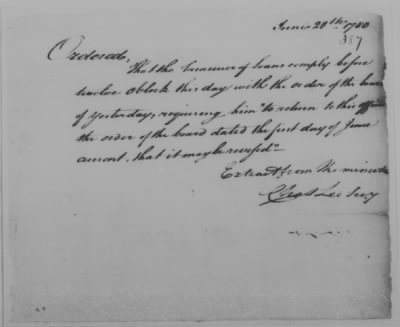 June 28th. 1780
387
Ordered,
That the Treasurer of Loans comply before
twelve oClock this day with the order of the board
of Yesterday, requiring him "to return to this office
the order of the board dated the first day of June
curront, that it may be revised"
Extract from the minutes
Chas Lee Secy